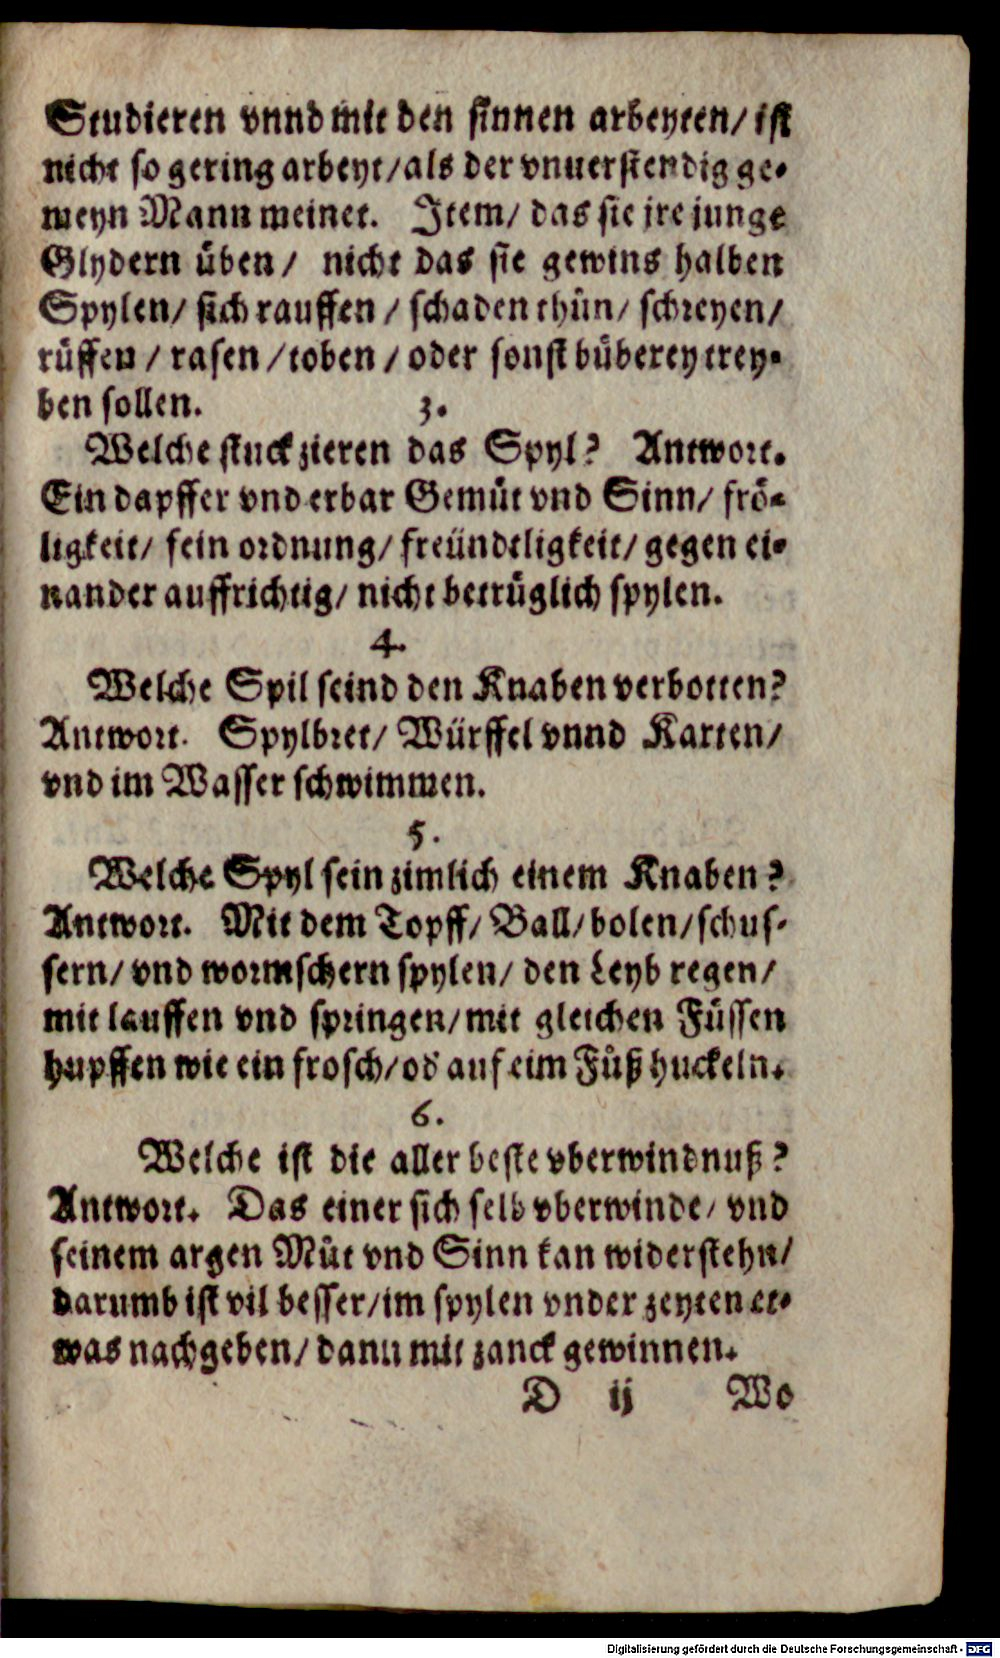 Studieren vnnd mit den sinnen arbeyten/ ist
nicht so gering arbeyt/ als der vnuerstendig ge-
meyn Mann meinet. Item/ das sie jre junge
Glydern üben/ nicht das sie gewins halben
Spylen/ sich rauffen / schaden thůn/ schreyen/
růffen / rasen / toben / oder sonst bůberey trey-
ben sollen. 3.
Welche stuck zieren das Spyl? Antwort.
Ein dapffer vnd erbar Gemůt vnd Sinn/ frö-
ligkeit/ fein ordnung/ freündtligkeit/ gegen ei-
nander auffrichtig/ nicht betrüglich spylen.
4.
Welche Spil seind den Knaben verbotten?
Antwort. Spylbret/ Würffel vnnd Karten/
vnd im Wasser schwimmen.
5.
Welche Spyl sein zimlich einem Knaben?
Antwort. Mit dem Topff/ Ball/ bolen/ schus-
sern/ vnd wormschern spylen/ den Leyb regen/
mit lauffen vnd springen/ mit gleichen Füssen
hupffen wie ein frosch/ od' auf eim Fůß huckeln.
6.
Welche ist die aller beste vberwindnuß?
Antwort. Das einer sich selb vberwinde/ vnd
seinem argen Můt vnd Sinn kan widerstehn/
darumb ist vil besser/ im spylen vnder zeyten et-
was nachgeben/ dann mit zanck gewinnen.
D ij Wo
Digitalisierung gefördert durch die Deutsche Forschungsgemeinschaft - DFG